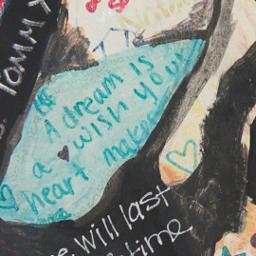 TOMMY
A dream is
a wish your
heart makes
Will last
time